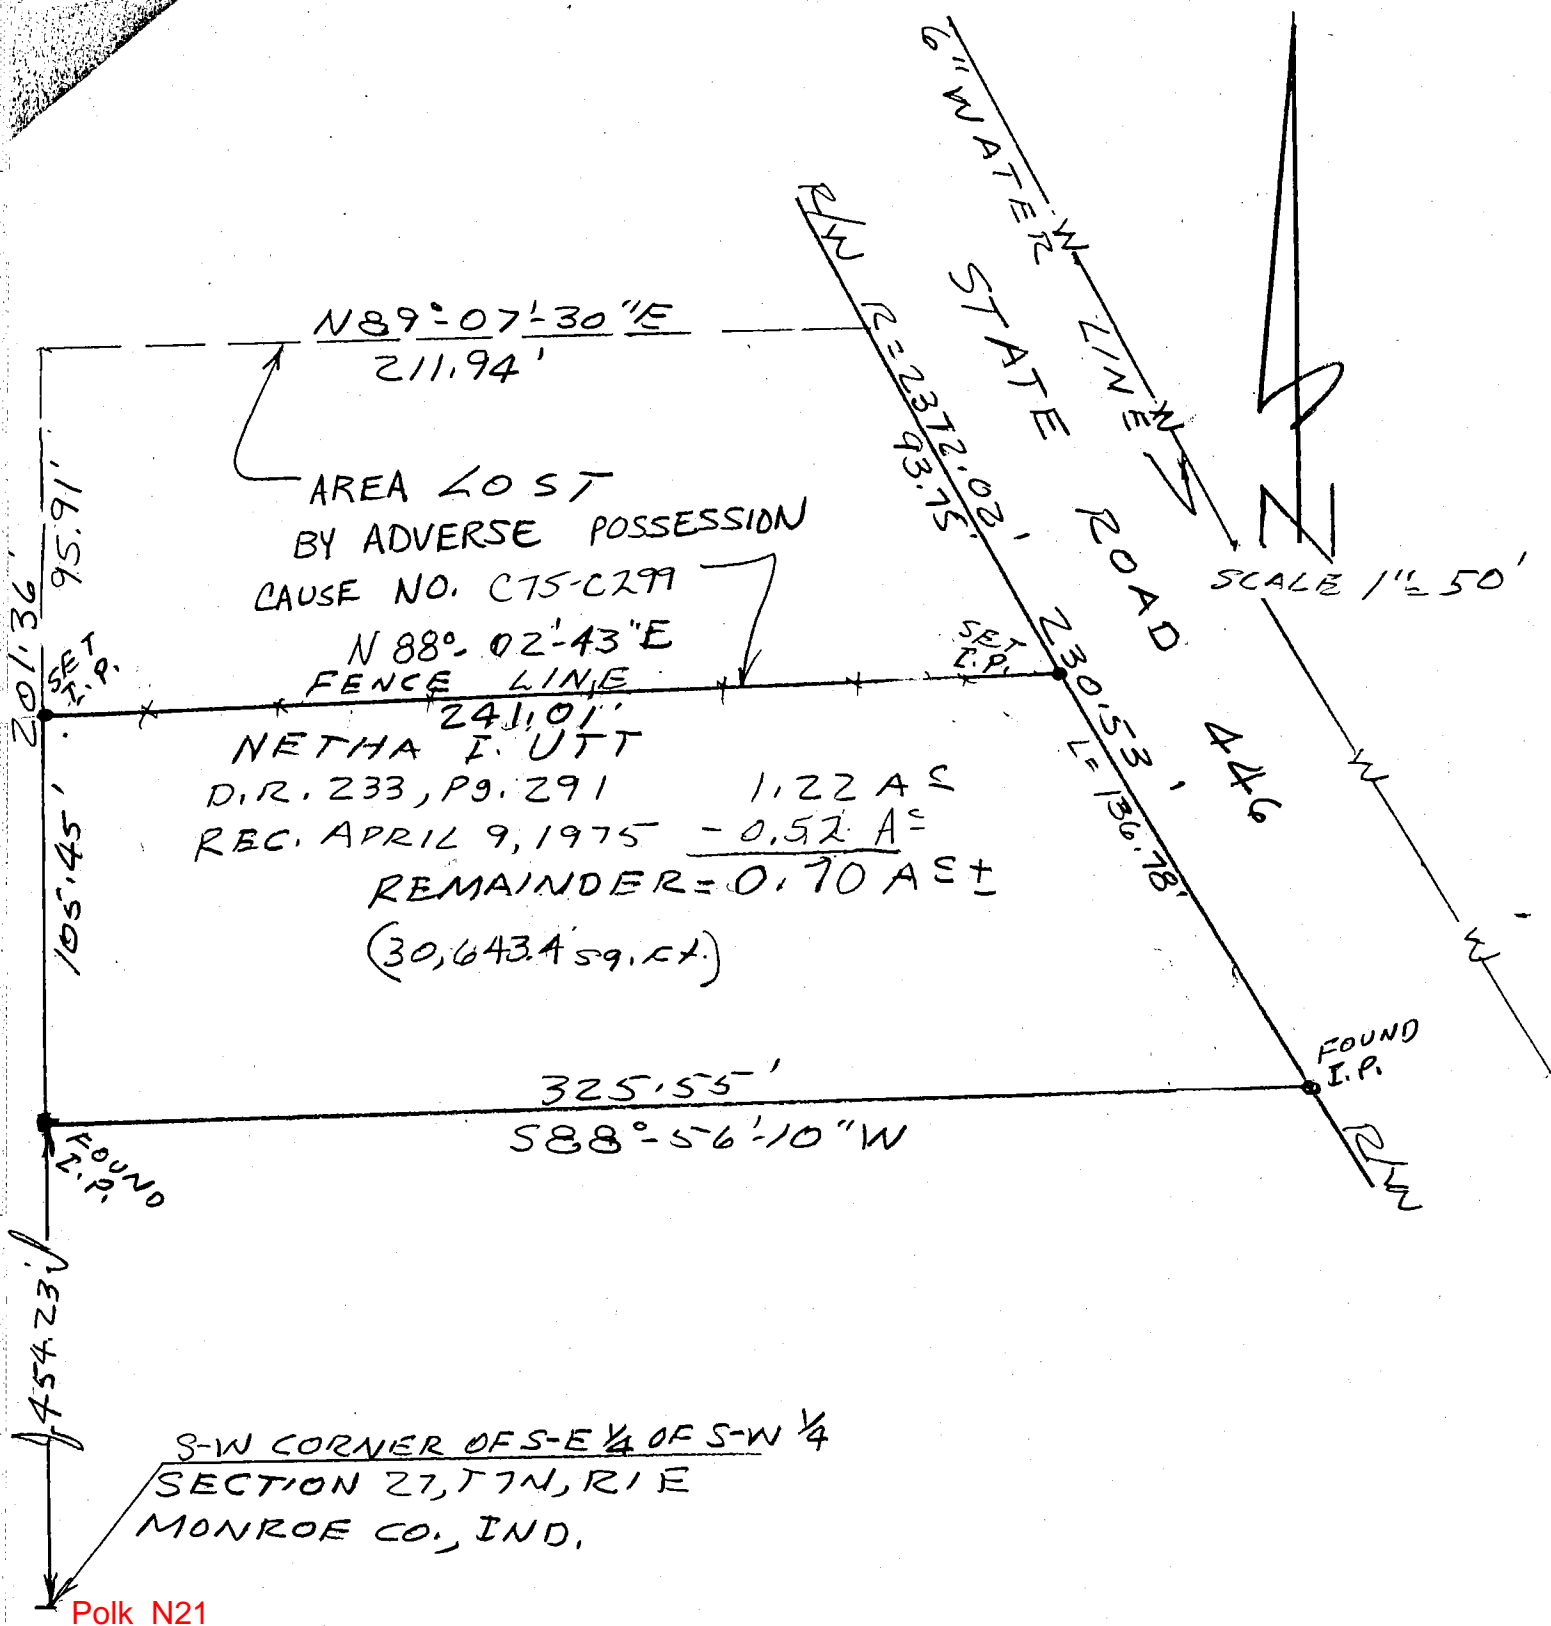 6" WATER LINE
W
W
W
W
R/W
STATE ROAD 446
N
SCALE 1"= 50'
N89°-07'-30"E
211.94'
R=2372.02'
93.75'
AREA LOST
BY ADVERSE POSSESSION
CAUSE NO. C75-C299
95.91'
201.36'
N 88°-02'-43"E
FENCE LINE
241.01'
SET
I.P.
SET
I.P.
230.53'
L=136.78'
NETHA I. UTT
D.R. 233, Pg. 291
REC. APRIL 9, 1975
1.22 Ac
- 0.52 Ac
REMAINDER = 0.70 Ac ±
(30,643.4 sq. ft.)
105.45'
FOUND
I.P.
325.55'
S88°-56'-10"W
FOUND
I.P.
R/W
454.23'
S-W CORNER OF S-E 1/4 OF S-W 1/4
SECTION 27, T7N, R1E
MONROE CO., IND.
Polk N21